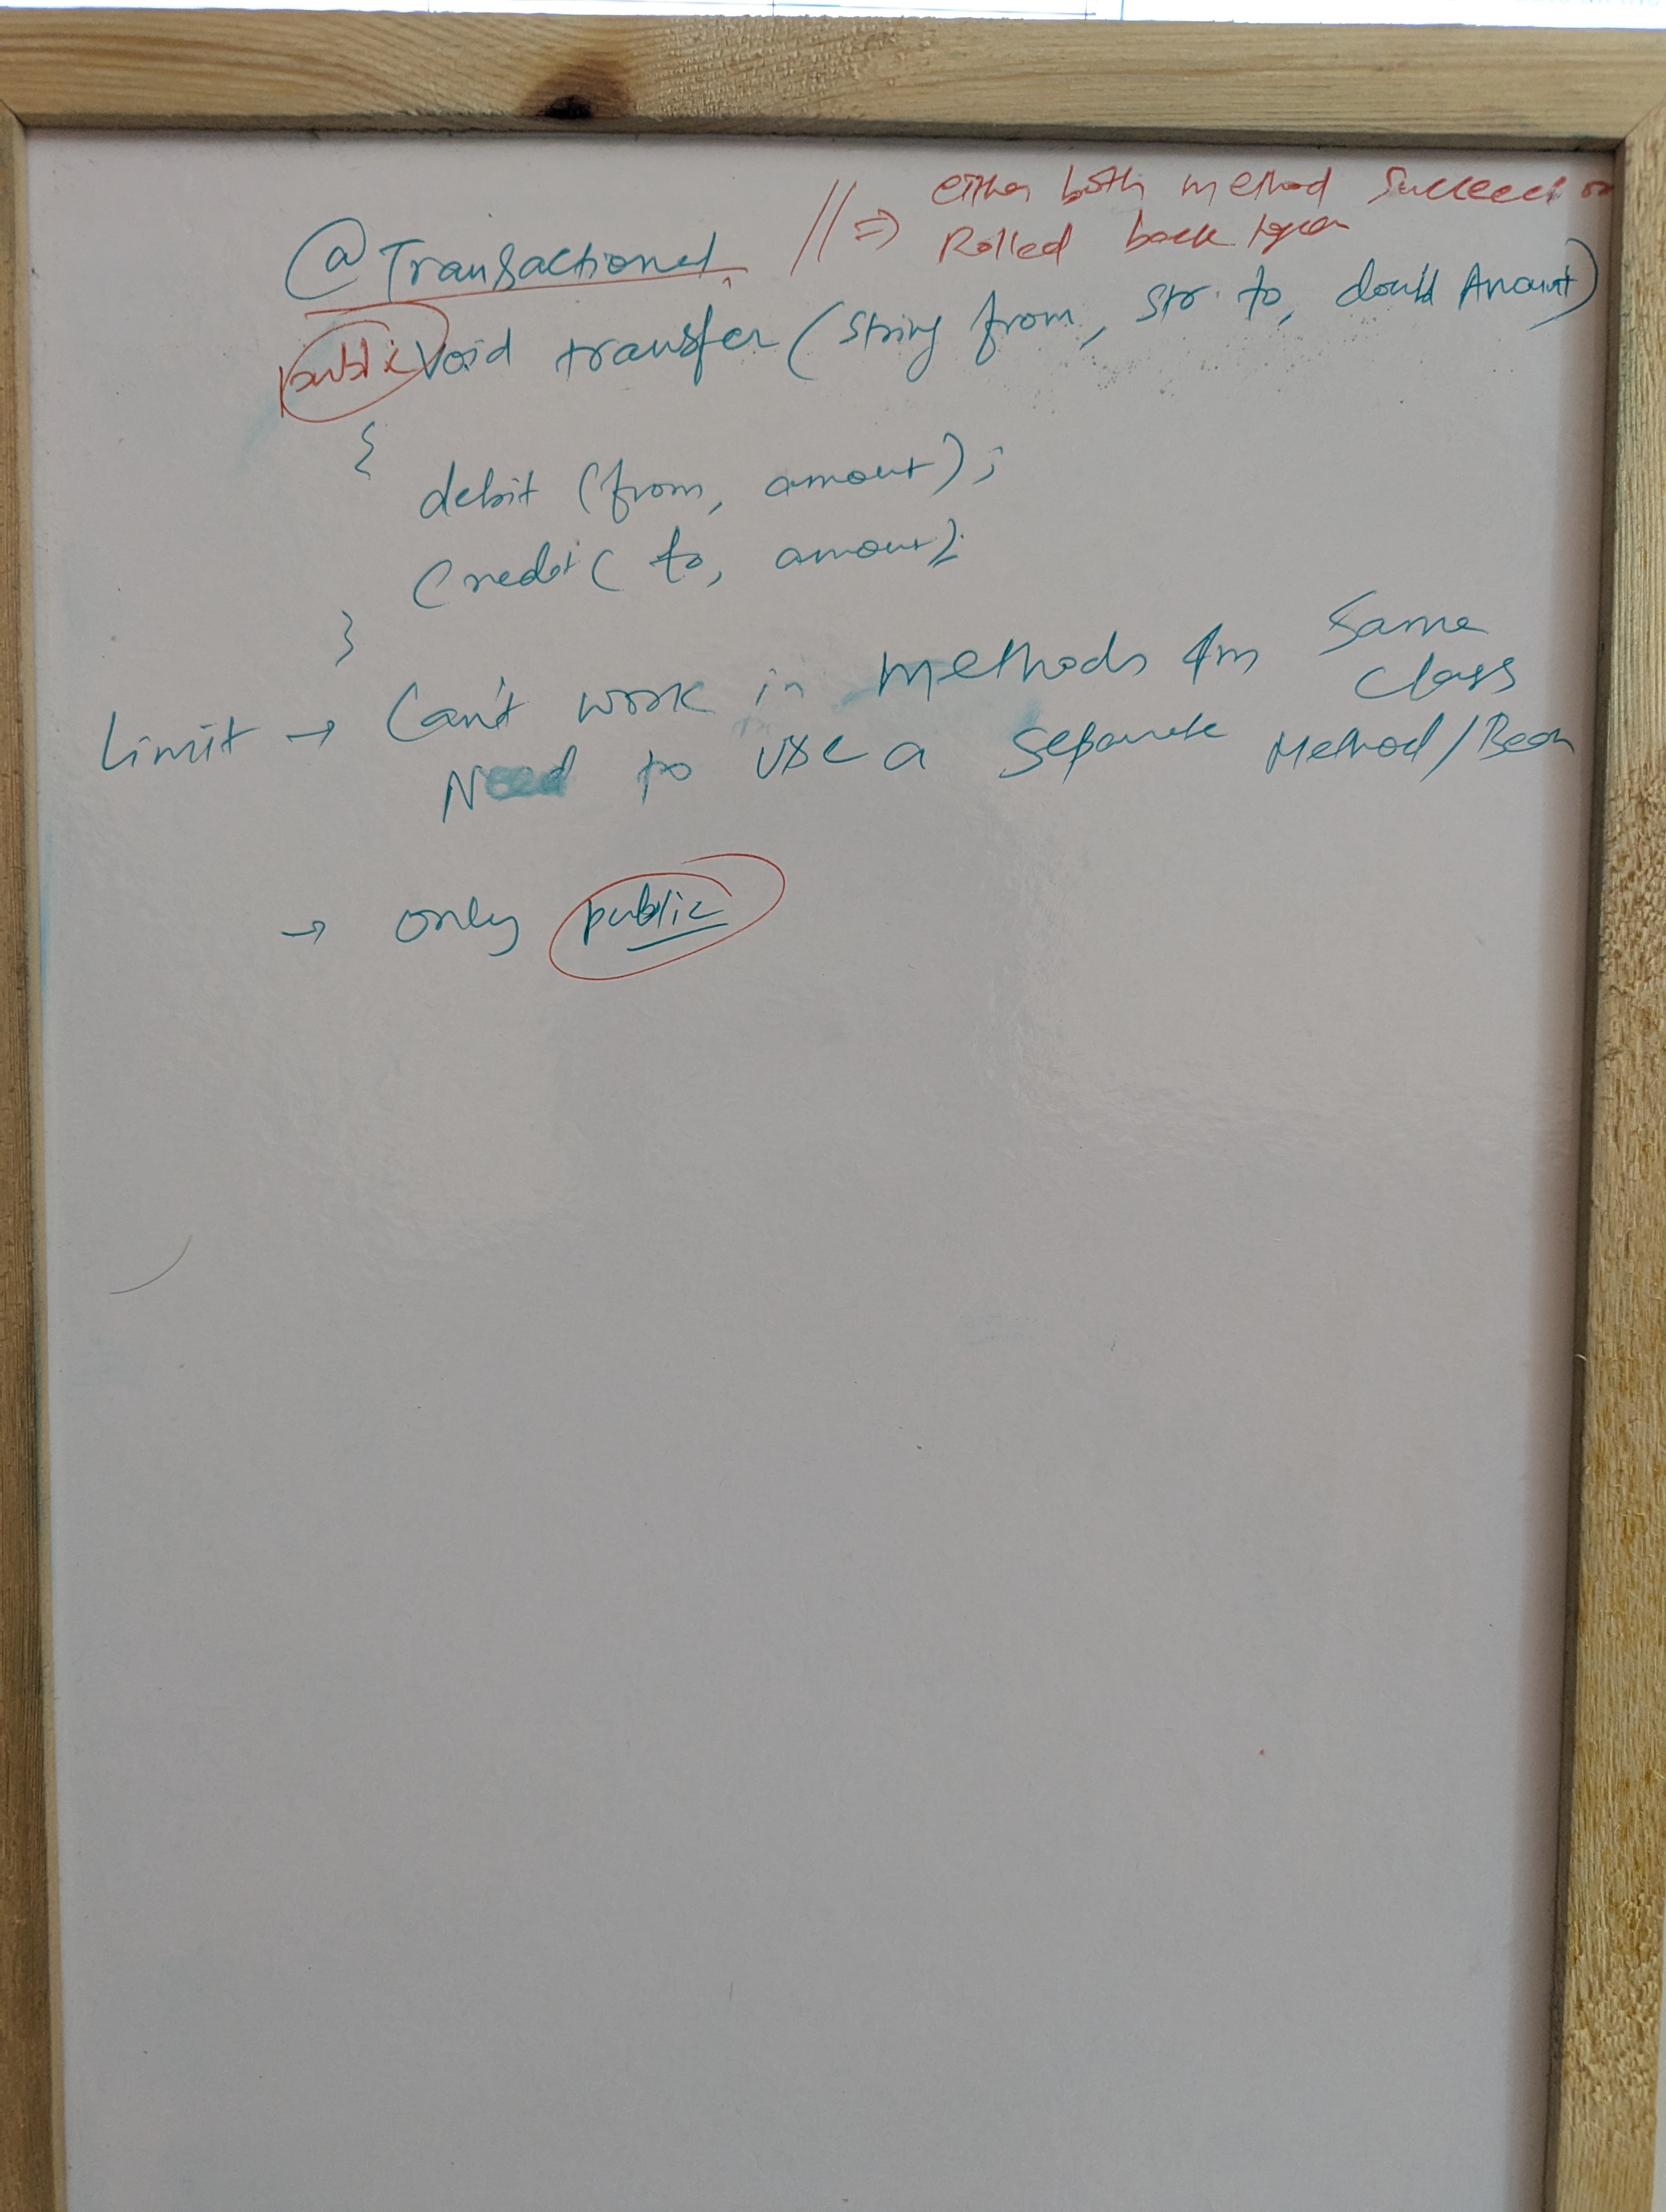 @Transactional // => either both method succeed or
Rolled back
public void transfer (String from, Str to, double Amount)
{
debit (from, amount);
Credit ( to, amount);
}
Limit → Can't work in methods from Same
class
Need to use a separate Method/Bean
→ only public